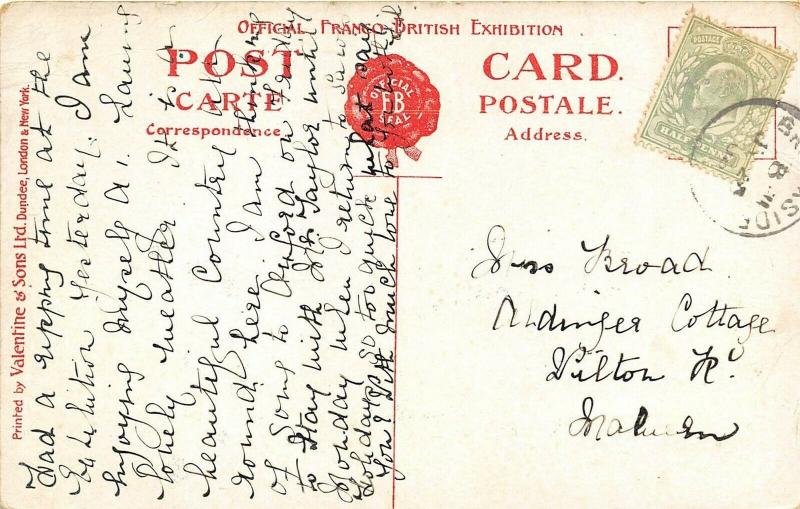 OFFICIAL FRANCO-BRITISH EXHIBITION
POST CARD.
CARTE POSTALE.
Correspondence. Address.
OFFICIAL
F.B
SEAL
POSTAGE
HALFPENNY
Printed by Valentine & Sons Ltd. Dundee, London & New York.
Had a ripping time at the
Exhibition Yesterday. I am
enjoying myself A1. Having
lovely weather. It is a
beautiful country all
round here. I am thinking
of going to on
to stay with Mr Taylor until
Monday when I return to
Holidays go too quick what say
you? With much love to
Miss Broad
Cottage
Wilton Rd
Malvern